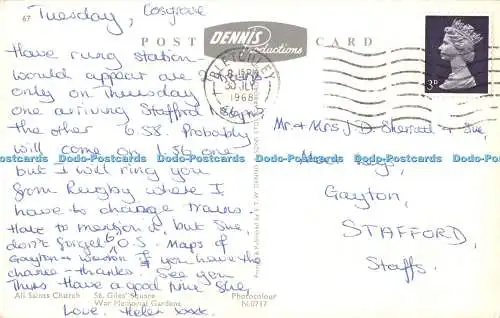 67
Tuesday, Cosgrove
POST CARD
DENNIS
Productions
BLETCHLEY
1968
3D
Have rung station
would appear are
only on Thursday
one arriving Stafford
the other 6.58. Probably
will come on 1.56 one
but I will ring you
from Rugby where I
have to change trains.
Hate to mention it, but Sue,
don't forget 6" O.S. Maps of
Gayton & Weston if you have the
chance - thanks. See you
Thurs. Have a good time Sue,
Love, Helen xxxx.
Mr. & Mrs J.D. Sherratt & Sue,
Gayton,
STAFFORD,
Staffs.
All Saints Church
St. Giles' Square
War Memorial Gardens
Photocolour
N.0717
Postcards-Postcards-Postcards-Postcards